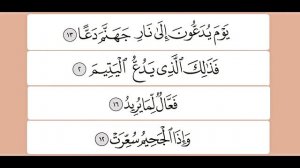 يَوْمَ يُدَعُّونَ إِلَىٰ نَارِ جَهَنَّمَ دَعًّا ١٣
فَذَٰلِكَ الَّذِي يَدُعُّ الْيَتِيمَ ٢
فَعَّالٌ لِّمَا يُرِيدُ ١٦
وَإِذَا الْجَحِيمُ سُعِّرَتْ ١٢